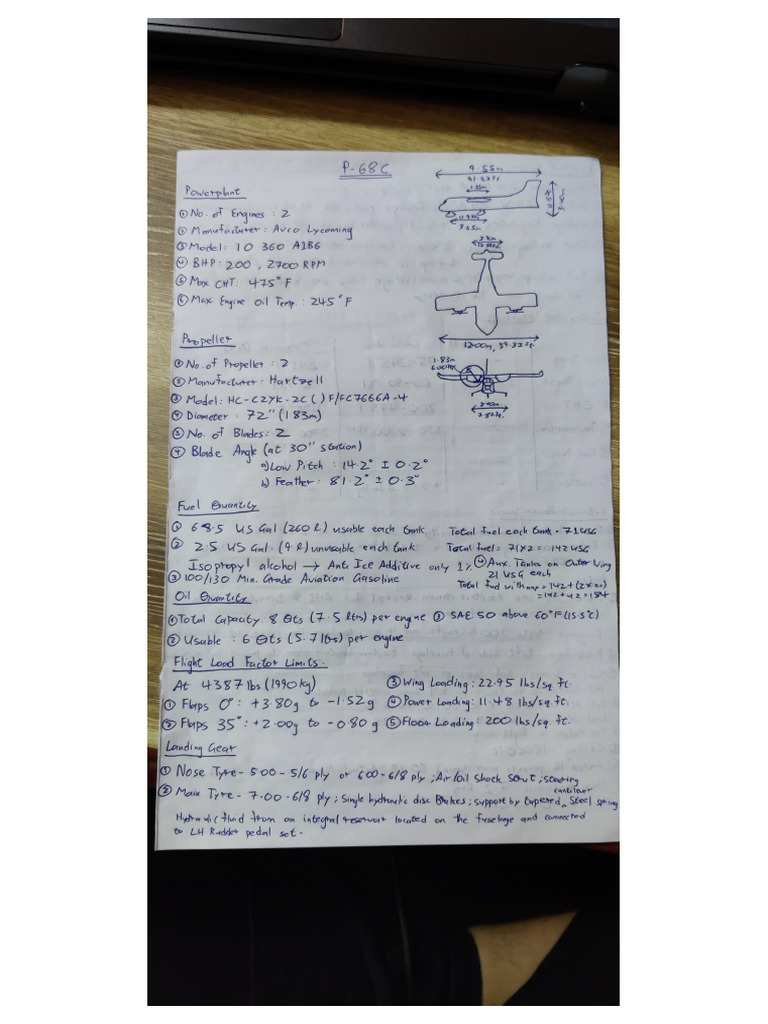 P-68C
9.55m
31.33ft.
Powerplant
① No. of Engines : 2
② Manufacturer : Avco Lycoming
③ Model: IO 360 A1B6
④ BHP: 200, 2700 RPM
⑤ Max CHT: 475°F
⑥ Max Engine Oil Temp.: 245°F
12.00m, 39.37ft.
Propeller
① No. of Propeller : 2
② Manufacturer : Hartzell
③ Model: HC-C2YK-2C( )F/FC7666A-4
④ Diameter : 72" (1.83m)
⑤ No. of Blades: 2
⑥ Blade Angle (at 30" station)
a) Low Pitch : 14.2° ± 0.2°
b) Feather : 81.2° ± 0.3°
1.83m
Fuel Quantity
① 68.5 US Gal (260 l) usable each tank
Total fuel each tank = 71 USG
② 2.5 US Gal. (9 l) unusable each tank
Total fuel = 71x2 = 142 USG
Isopropyl alcohol → Anti Ice Additive only 1%
④ Aux. Tanks on Outer Wing
21 USG each
③ 100/130 Min. Grade Aviation Gasoline
Total fuel with aux = 142+(2x21)
= 142+42 = 184
Oil Quantity
① Total Capacity: 8 Qts (7.5 ltrs) per engine ③ SAE 50 above 60°F (15.5°C)
② Usable : 6 Qts (5.7 ltrs) per engine
Flight Load Factor Limits.
At 4387 lbs (1990 kg)
③ Wing Loading: 22.95 lbs/sq.ft.
① Flaps 0°: +3.80g to -1.52g
④ Power Loading: 11.48 lbs/sq.ft.
② Flaps 35°: +2.00g to -0.80g
⑤ Floor Loading: 200 lbs/sq.ft.
Landing Gear
① Nose Tyre - 5.00 - 5/6 ply or 600 - 6/8 ply ; Air/oil Shock Strut ; Steering
② Main Tyre - 7.00 - 6/8 ply ; Single hydraulic disc Brakes ; support by tapered cantilever Steel spring
Hydraulic fluid from an integral reservoir located on the fuselage and connected
to LH Rudder pedal set.